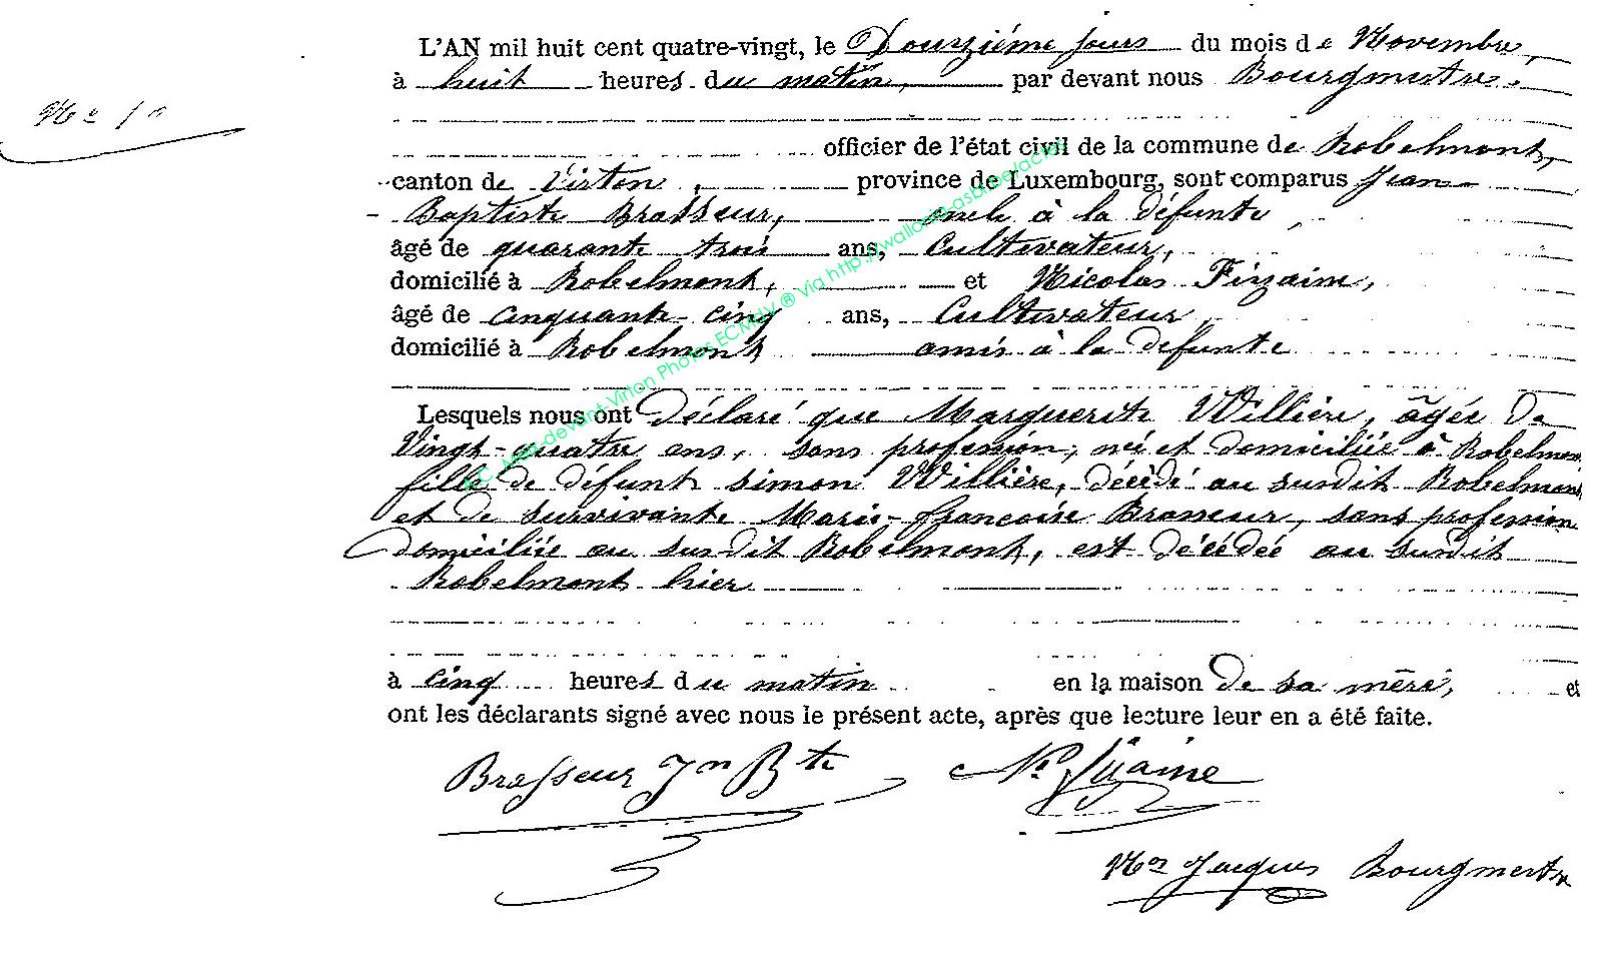 L'AN mil huit cent quatre-vingt, le Douzième jours du mois de Novembre,
à huit heures du matin, par devant nous Bourgmestre.
No 10
officier de l'état civil de la commune de Robelmont,
canton de Virton, province de Luxembourg, sont comparus Jean
Baptiste Brasseur, oncle à la défunte,
âgé de quarante trois ans, Cultivateur,
domicilié à Robelmont, et Nicolas Fizaine,
âgé de cinquante-cinq ans, Cultivateur,
domicilié à Robelmont amis à la défunte
Lesquels nous ont Déclaré que Marguerite Willière, âgée De
Vingt-quatre ans, sans profession, née et domiciliée à Robelmont
fille de défunt simon Willière, décédé au susdit Robelmont
et de survivante Marie-françoise Brasseur, sans profession
domiciliée au susdit Robelmont, est décédée au susdit
Robelmont hier
à cinq heures du matin en la maison De sa mère, et
ont les déclarants signé avec nous le présent acte, après que lecture leur en a été faite.
Brasseur Jn Bte Ns Fizaine
Jacques Bourgmestre